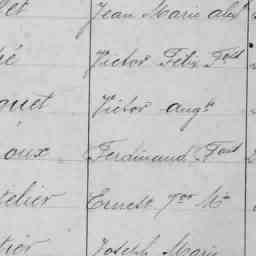 let Jean Marie alexre
ié Victor Felix Fois
quet Victor augte
oux Ferdinand Fois
telier Ernest Jor Mie
tier Joseph Marie